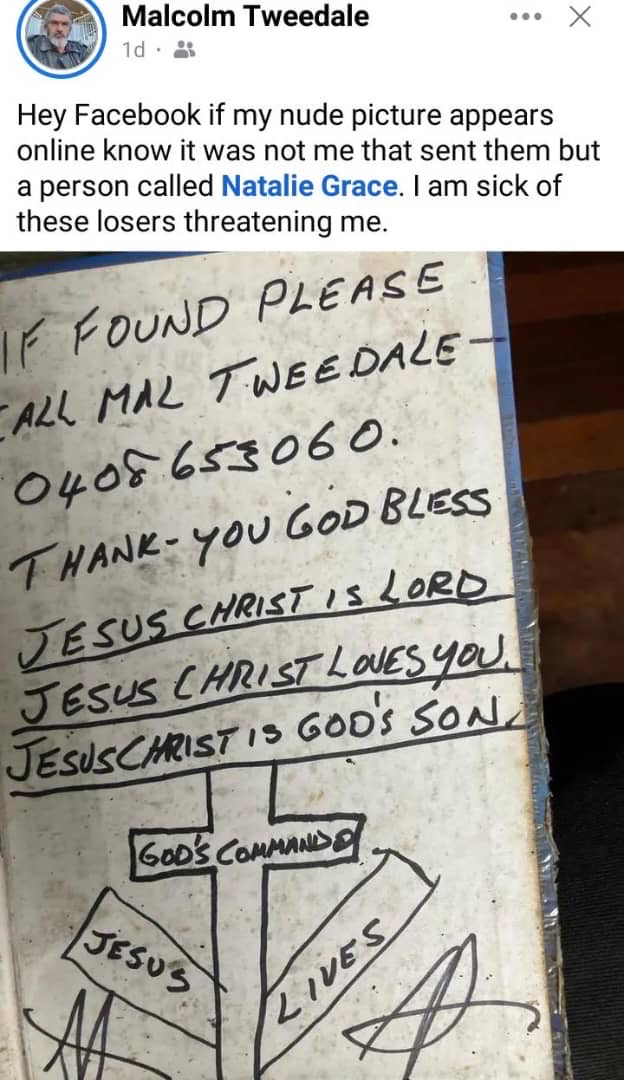 Malcolm Tweedale
1d ·
Hey Facebook if my nude picture appears
online know it was not me that sent them but
a person called Natalie Grace. I am sick of
these losers threatening me.
IF FOUND PLEASE
CALL MAL TWEEDALE-
0408 653060.
THANK-YOU GOD BLESS
JESUS CHRIST IS LORD
JESUS CHRIST LOVES YOU.
JESUS CHRIST IS GOD'S SON.
GOD'S COMMANDO
JESUS
LIVES